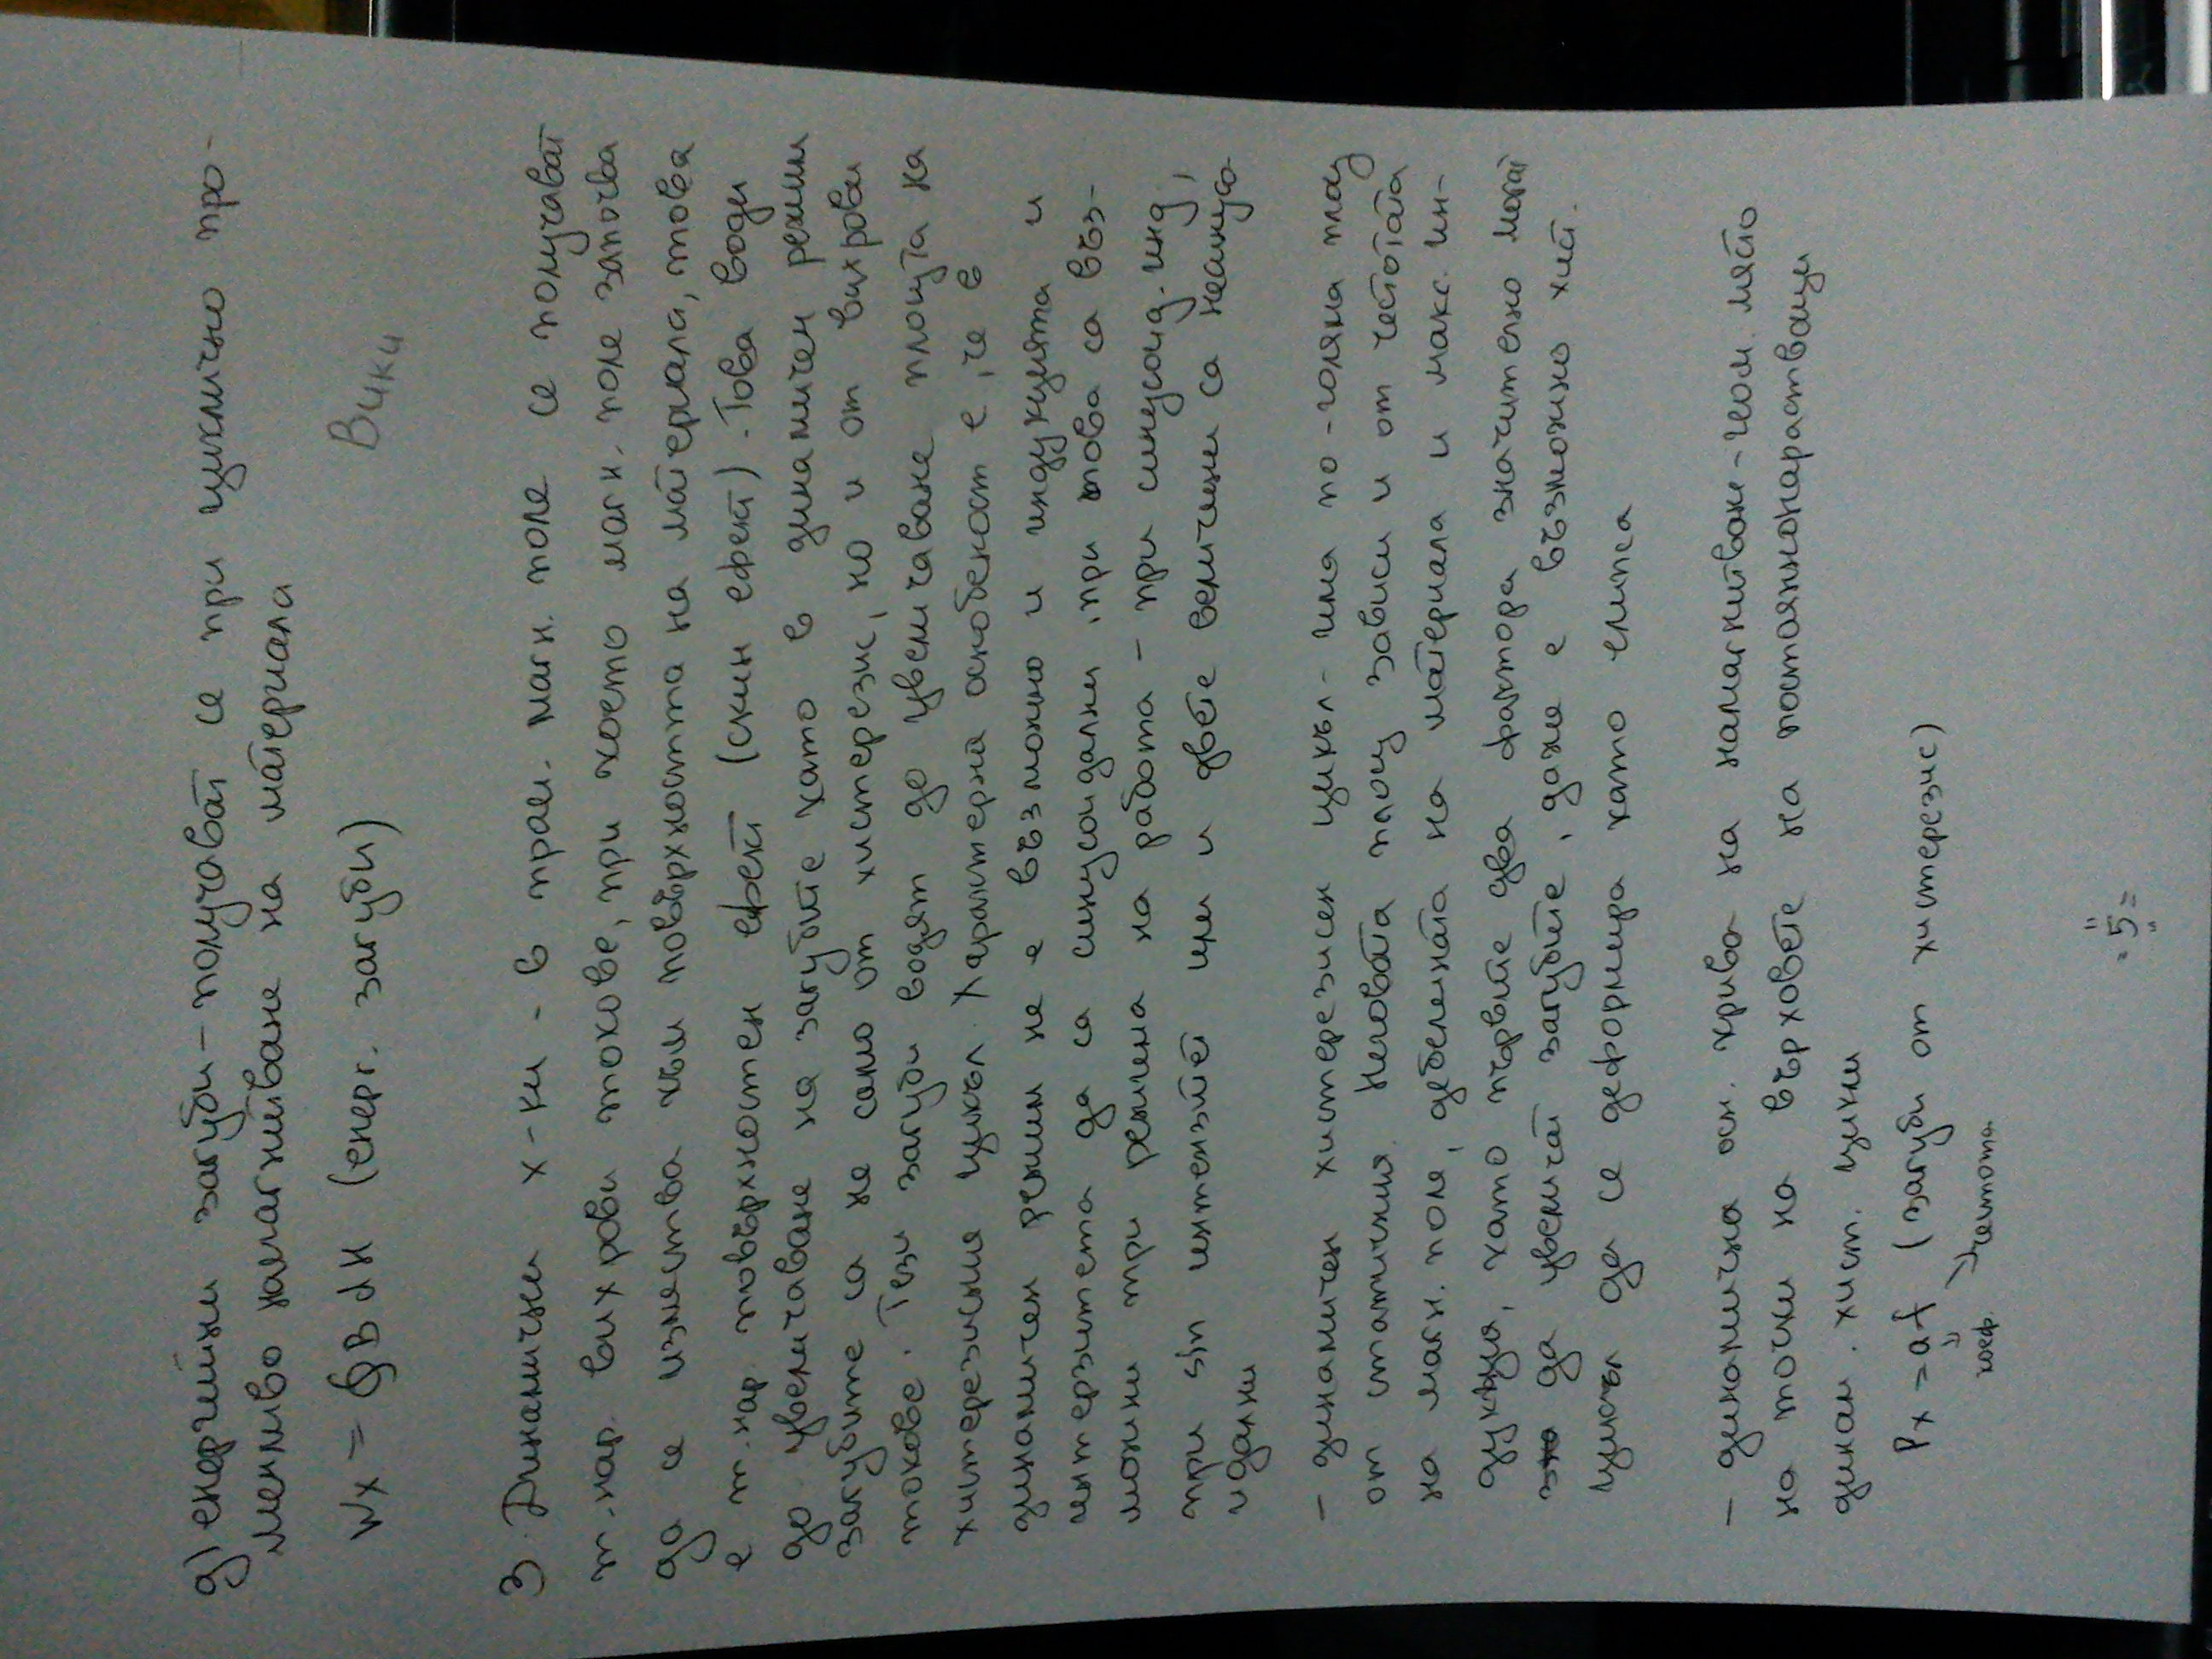 д) енергийни загуби – получават се при циклично про-
менливо намагнитване на материала
Вики
Wx = ∮BdH (енерг. загуби)
3. Динамични х-ки - в пром. магн. поле се получават
т. нар. вихрови токове, при което магн. поле започва
да се измества към повърхността на материала, това
е т. нар. повърхностен ефект (скин ефект). Това води
до увеличаване на загубите като в динамичен режим
загубите са не само от хистерезис, но и от вихрови
токове. Тези загуби водят до увеличаване площта на
хистерезисния цикъл. Характерна особеност е, че в
динамичен режим не е възможно и индукцията и
интензитета да са синусоидални, при това са въз-
можни три режима на работа – при синусоид. инд,
при sin интензитет или и двете величини са несинусо-
идални
– динамичен хистерезисен цикъл - има по-голяма площ
от статичния. Неговата площ зависи и от честотата
на магн. поле, дебелината на материала и макс. ин-
дукция, като първите два фактора значително могат
да увеличат загубите, даже е възможно хист.
цикъл да се деформира като елипса
– динамична осн. крива на намагнитване - геом. място
на точки на върховете на постояннонарастващи
динам. хист. цикли
Px = af (загуби от хистерезис)
коеф. честота
= 5 =